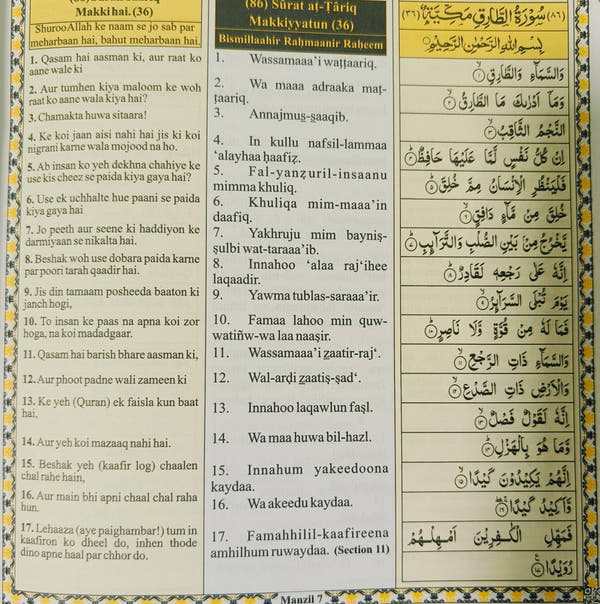 Makki hai. (36)
ShurooAllah ke naam se jo sab par
meharbaan hai, bahut meharbaan hai.
1. Qasam hai aasman ki, aur raat ko
aane wale ki
2. Aur tumhen kiya maloom ke woh
raat ko aane wala kiya hai?
3. Chamakta huwa sitaara!
4. Ke koi jaan aisi nahi hai jis ki koi
nigrani karne wala mojood na ho.
5. Ab insan ko yeh dekhna chahiye ke
use kis cheez se paida kiya gaya hai?
6. Use ek uchhalte hue paani se paida
kiya gaya hai
7. Jo peeth aur seene ki haddiyon ke
darmiyaan se nikalta hai.
8. Beshak woh use dobara paida karne
par poori tarah qaadir hai.
9. Jis din tamaam posheeda baaton ki
janch hogi,
10. To insan ke paas na apna koi zor
hoga, na koi madadgaar.
11. Qasam hai barish bhare aasman ki,
12. Aur phoot padne wali zameen ki
13. Ke yeh (Quran) ek faisla kun baat
hai,
14. Aur yeh koi mazaaq nahi hai.
15. Beshak yeh (kaafir log) chaalen
chal rahe hain,
16. Aur main bhi apni chaal chal raha
hun.
17. Lehaaza (aye paighambar!) tum in
kaafiron ko dheel do, inhen thode
dino apne haal par chhor do.
(86) Sūrat aṭ-Ṭāriq
Makkiyyatun (36)
Bismillaahir Raḥmaanir Raḥeem
1. Wassamaaa'i waṭṭaariq.
2. Wa maaa adraaka maṭ-
ṭaariq.
3. Annajmuṣ-ṣaaqib.
4. In kullu nafsil-lammaa
'alayhaa ḥaafiẓ.
5. Fal-yanẓuril-insaanu
mimma khuliq.
6. Khuliqa mim-maaa'in
daafiq.
7. Yakhruju mim bayniṣ-
ṣulbi wat-taraaa'ib.
8. Innahoo 'alaa raj'ihee
laqaadir.
9. Yawma tublas-saraaa'ir.
10. Famaa lahoo min quw-
watiñw-wa laa naaṣir.
11. Wassamaaa'i ẕaatir-raj'.
12. Wal-arḍi ẕaatiṣ-ṣad'.
13. Innahoo laqawlun faṣl.
14. Wa maa huwa bil-hazl.
15. Innahum yakeedoona
kaydaa.
16. Wa akeedu kaydaa.
17. Famahhilil-kaafireena
amhilhum ruwaydaa. (Section 11)
(٨٦) سُوْرَةُ الطَّارِقِ مَكِّيَّةٌ (٣٦)
بِسْمِ اللهِ الرَّحْمٰنِ الرَّحِيْمِ
وَالسَّمَآءِ وَالطَّارِقِ ۝١
وَمَآ اَدْرٰىكَ مَا الطَّارِقُ ۝٢
النَّجْمُ الثَّاقِبُ ۝٣
اِنْ كُلُّ نَفْسٍ لَّمَّا عَلَيْهَا حَافِظٌ ۝٤
فَلْيَنْظُرِ الْاِنْسَانُ مِمَّ خُلِقَ ۝٥
خُلِقَ مِنْ مَّآءٍ دَافِقٍ ۝٦
يَّخْرُجُ مِنْۢ بَيْنِ الصُّلْبِ وَالتَّرَآئِبِ ۝٧
اِنَّهٗ عَلٰى رَجْعِهٖ لَقَادِرٌ ۝٨
يَوْمَ تُبْلَى السَّرَآئِرُ ۝٩
فَمَا لَهٗ مِنْ قُوَّةٍ وَّلَا نَاصِرٍ ۝١٠
وَالسَّمَآءِ ذَاتِ الرَّجْعِ ۝١١
وَالْاَرْضِ ذَاتِ الصَّدْعِ ۝١٢
اِنَّهٗ لَقَوْلٌ فَصْلٌ ۝١٣
وَّمَا هُوَ بِالْهَزْلِ ۝١٤
اِنَّهُمْ يَكِيْدُوْنَ كَيْدًا ۝١٥
وَّاَكِيْدُ كَيْدًا ۝١٦
فَمَهِّلِ الْكٰفِرِيْنَ اَمْهِلْهُمْ
رُوَيْدًا ۝١٧
Manzil 7